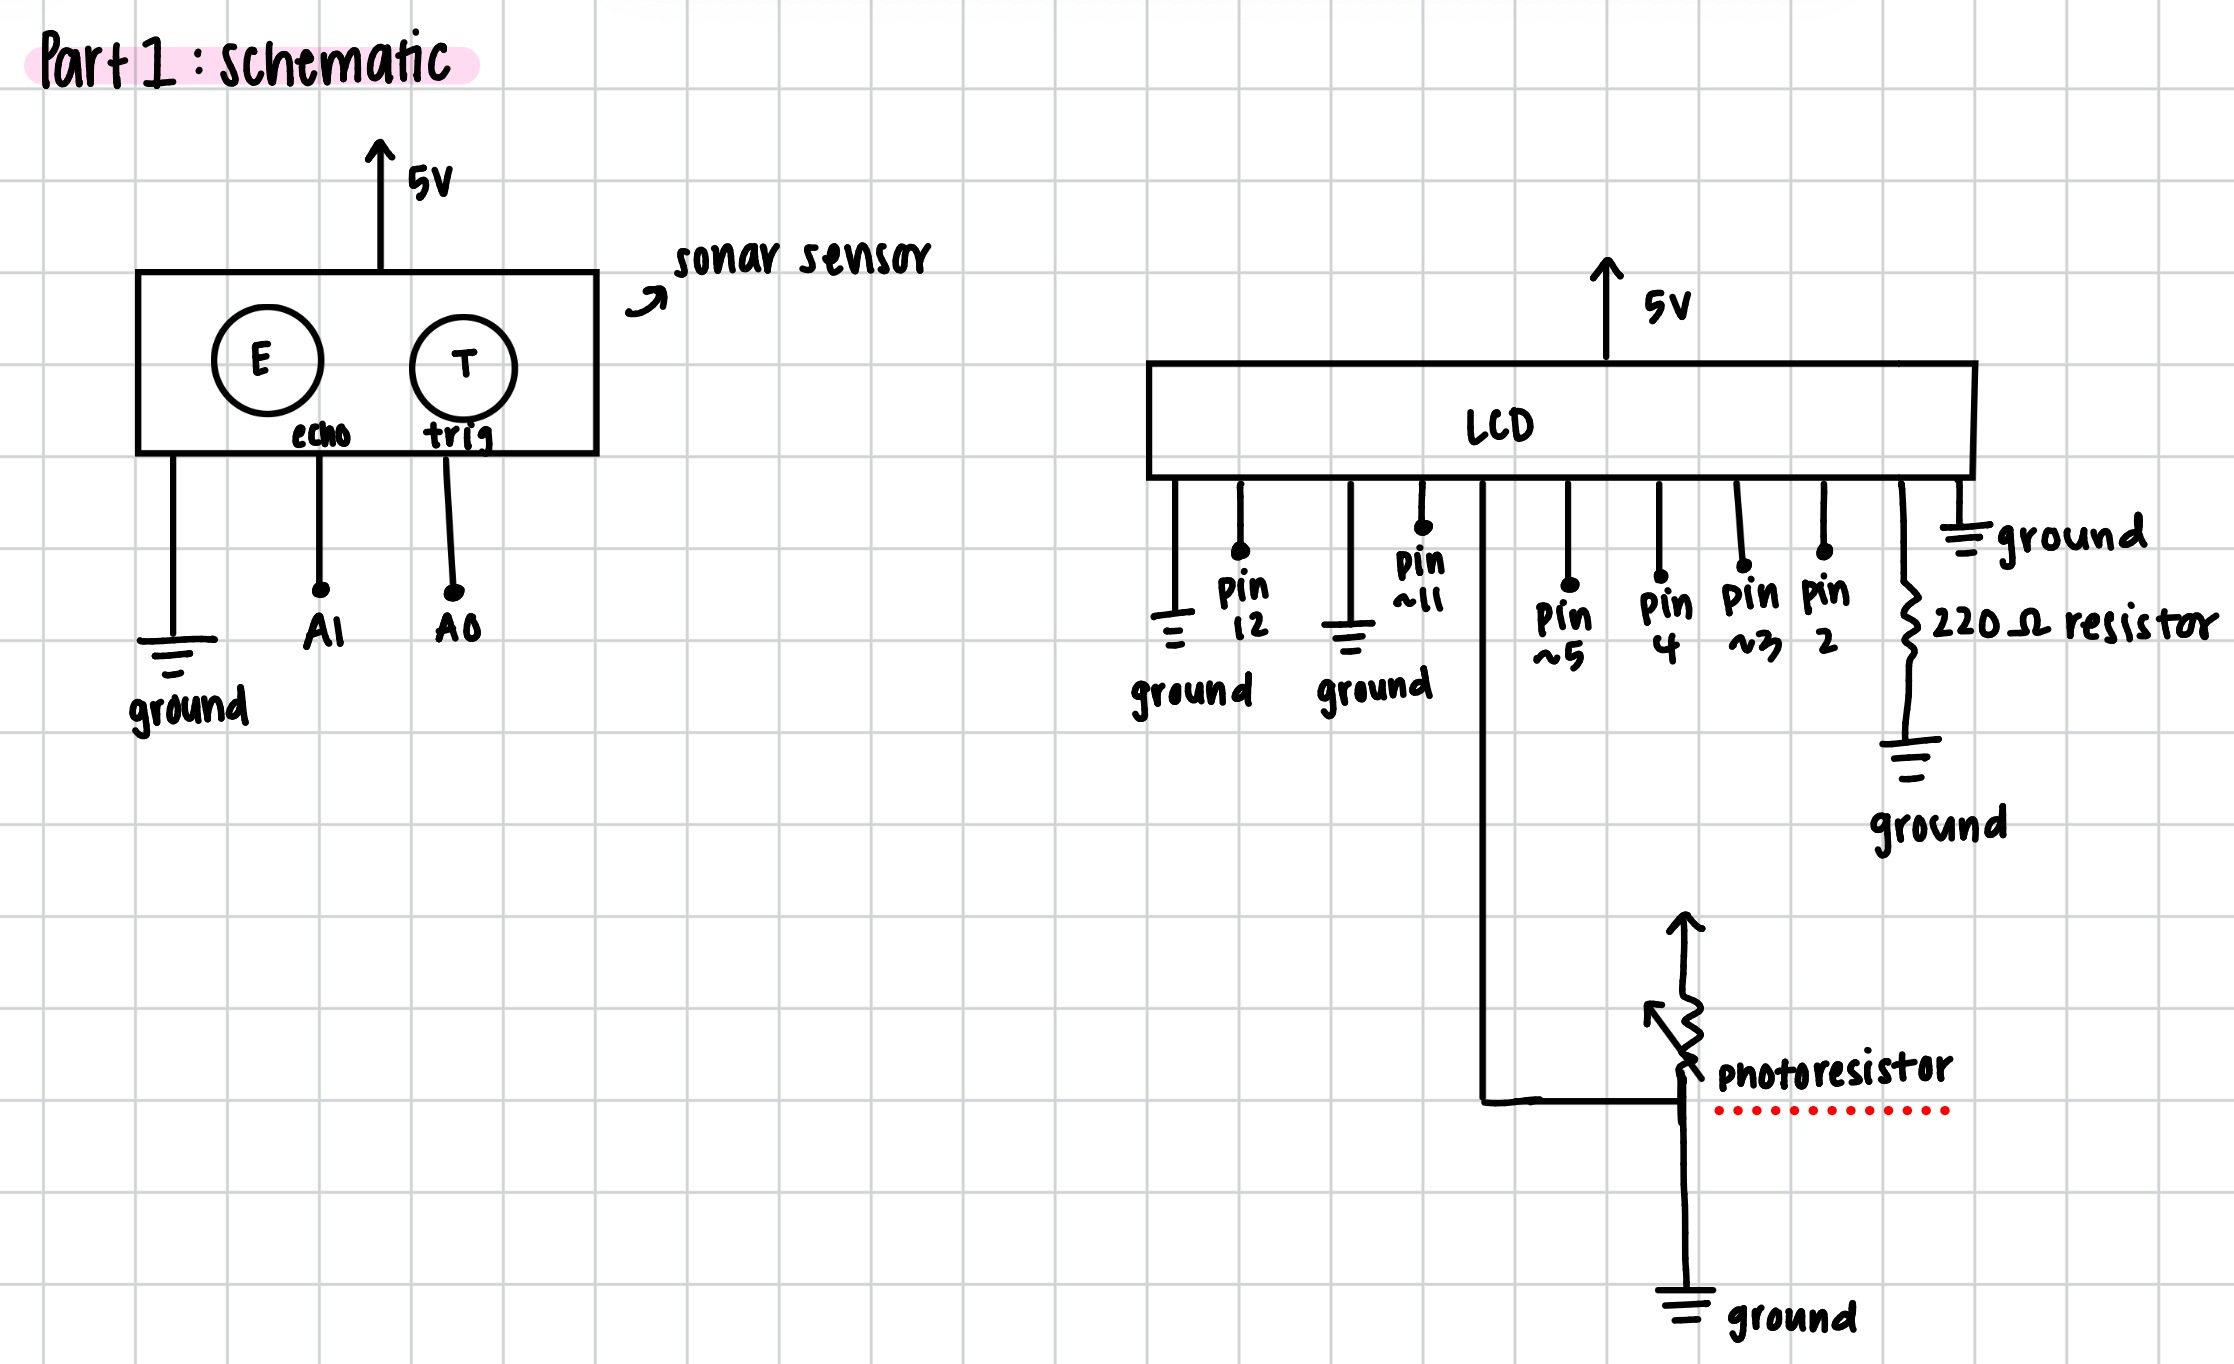 Part 1: schematic
5V
sonar sensor
E
T
echo
trig
A1
A0
ground
5V
LCD
ground
pin 12
ground
pin ~11
pin ~5
pin 4
pin ~3
pin 2
220 Ω resistor
ground
ground
photoresistor
ground